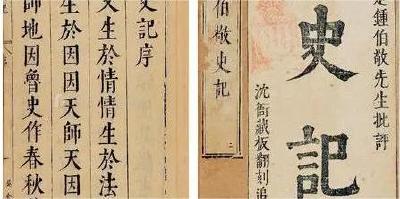 史記序
生於情情生於法
生於因因天師天因
師地因魯史作春秋
鍾伯敬先生批評
史記
沈衙藏板翻刻追
伯敬史記